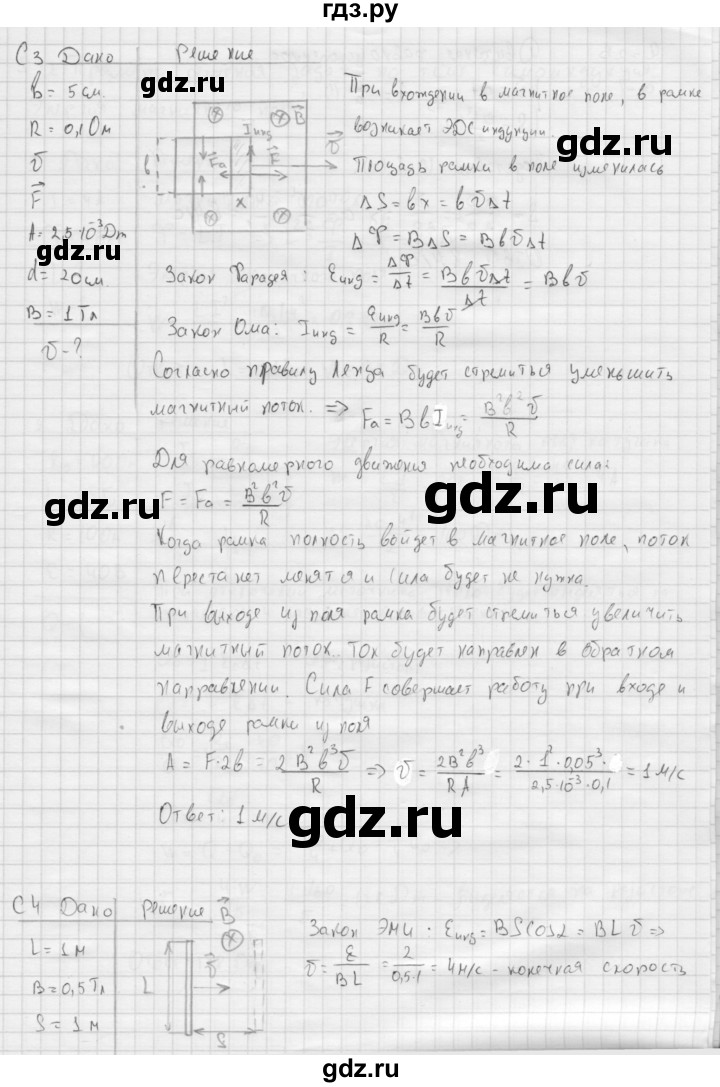 гдз.ру
С3 Дано Решение
b = 5 см.
R = 0,1 Ом
v⃗
F⃗
A = 2,5·10⁻³ Дж
d = 20 см.
B = 1 Тл
v - ?
B⃗
Iинд
Fа
F⃗
v⃗
b
x
При вхождении в магнитное поле, в рамке
возникает ЭДС индукции.
Площадь рамки в поле изменилась
ΔS = bx = bvΔt
ΔФ = BΔS = BbvΔt
Закон Фарадея: εинд = ΔФ/Δt = BbvΔt/Δt = Bbv
Закон Ома: Iинд = εинд/R = Bbv/R
Согласно правилу Ленца будет стремиться уменьшить
магнитный поток. => Fа = BbIинд = B²b²v/R
Для равномерного движения необходима сила:
F = Fа = B²b²v/R
Когда рамка полность войдет в магнитное поле, поток
перестанет менятся и сила будет не нужна.
При выходе из поля рамка будет стремиться увеличить
магнитный поток. Ток будет направлен в обратном
направлении. Сила F совершает работу при входе и
выходе рамки из поля
A = F·2b = 2B²b³v/R => v = 2B²b³/RA = 2·1²·0,05³/2,5·10⁻³·0,1 = 1 м/с
Ответ: 1 м/с
С4 Дано Решение
L = 1 м
B = 0,5 Тл
S = 1 м
B⃗
v⃗
L
S
Закон ЭМИ. εинд = BSCosα = BLv =>
v = ε/BL = 2/0,5·1 = 4 м/с - конечная скорость
gdz.ru
gdz.ru
gdz.ru
gdz.ru
gdz.ru
gdz.ru
gdz.ru
gdz.ru
gdz.ru
gdz.ru
gdz.ru
gdz.ru